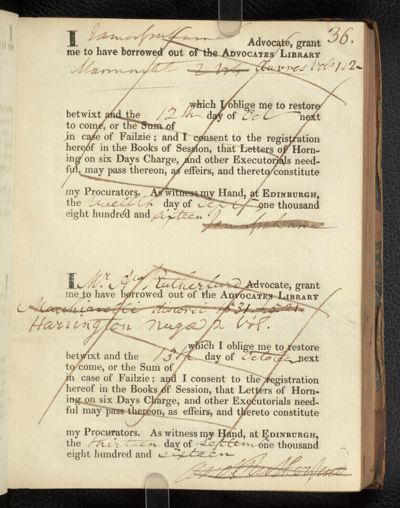 36.
I James Advocate, grant
me to have borrowed out of the ADVOCATES LIBRARY
Marmontel 2 Vols Œuvres Vols 1 & 2
which I oblige me to restore
betwixt and the 12th day of Oct next
to come, or the Sum of
in case of Failzie; and I consent to the registration
hereof in the Books of Session, that Letters of Horn-
ing on six Days Charge, and other Executorials need-
ful, may pass thereon, as effeirs, and thereto constitute
my Procurators. As witness my Hand, at EDINBURGH,
the twelfth day of Sept one thousand
eight hundred and sixteen
James
I Mr. And Rutherfurd Advocate, grant
me to have borrowed out of the ADVOCATES LIBRARY
Harrington nugæ 2 vols.
which I oblige me to restore
betwixt and the 13th day of October next
to come, or the Sum of
in case of Failzie; and I consent to the registration
hereof in the Books of Session, that Letters of Horn-
ing on six Days Charge, and other Executorials need-
ful may pass thereon, as effeirs, and thereto constitute
my Procurators. As witness my Hand, at EDINBURGH,
the thirteen day of Septem one thousand
eight hundred and sixteen
And Rutherfurd